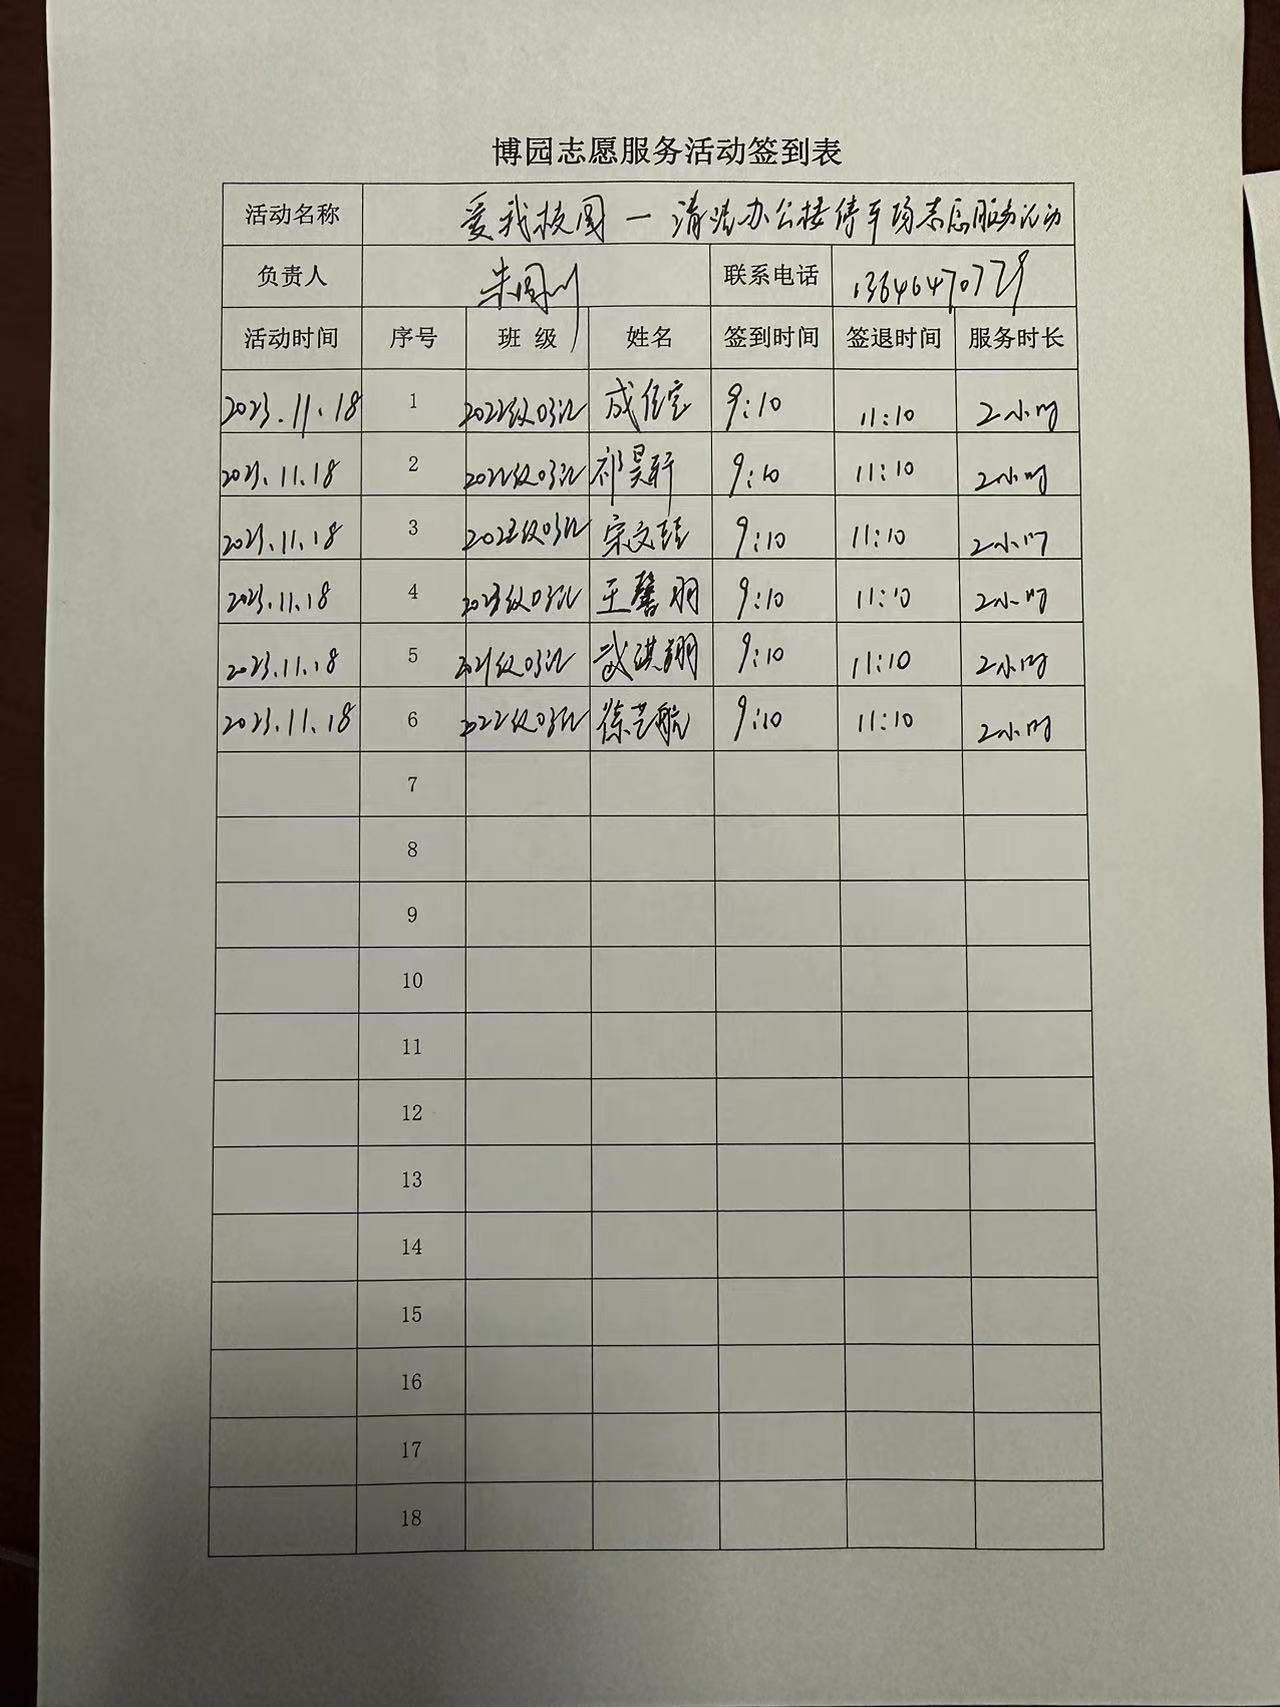 博园志愿服务活动签到表
活动名称 爱我校园—清洁办公楼停车场志愿服务活动
负责人 朱国川 联系电话 13646470729
活动时间 序号 班级 姓名 签到时间 签退时间 服务时长
2023.11.18 1 2022级03班 成佳宝 9:10 11:10 2小时
2023.11.18 2 2022级03班 祁昊轩 9:10 11:10 2小时
2023.11.18 3 2022级03班 宋文 9:10 11:10 2小时
2023.11.18 4 2023级03班 王馨羽 9:10 11:10 2小时
2023.11.18 5 2021级03班 武琪翔 9:10 11:10 2小时
2023.11.18 6 2022级03班 徐艺航 9:10 11:10 2小时
7
8
9
10
11
12
13
14
15
16
17
18